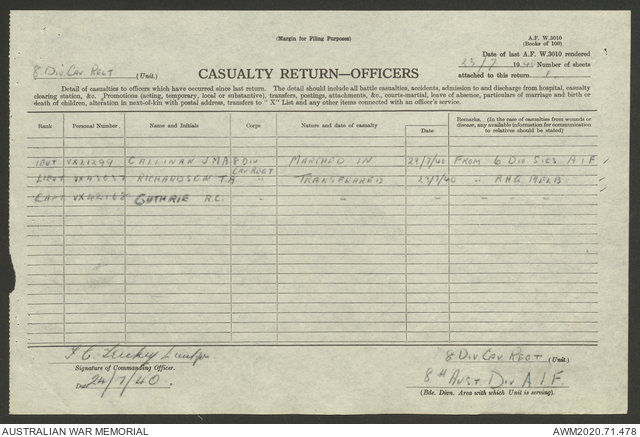 (Margin for Filing Purposes)
A.F. W.3010
(Books of 100)
Date of last A.F. W.3010 rendered
23/7 1940 Number of sheets
attached to this return 1
8 Div. Cav. Regt (Unit.)
CASUALTY RETURN—OFFICERS
Detail of casualties to officers which have occurred since last return. The detail should include all battle casualties, accidents, admission to and discharge from hospital, casualty
clearing station, &c. Promotions (acting, temporary, local or substantive), transfers, postings, attachments, &c., courts-martial, leave of absence, particulars of marriage and birth or
death of children, alteration in next-of-kin with postal address, transfers to "X" List and any other items connected with an officer's service.
Rank Personal Number. Name and Initials Corps Nature and date of casualty Date Remarks. (In the case of casualties from wounds or disease, any available information for communication to relatives should be stated)
LIEUT CALLINAN J M A 8 DIV MARCHED IN 23/7/40 FROM 6 DIV SIGS. A.I.F
CAV REGT
LIEUT RICHARDSON T.A " TRANSFERRED 23/7/40 "
CAPT GUTHRIE R.C. " " "
Signature of Commanding Officer.
Date 24/7/40.
8 Div Cav Regt (Unit.)
8th Aust Div A.I.F.
(Bde. Divn. Area with which Unit is serving).
AUSTRALIAN WAR MEMORIAL
AWM2020.71.478